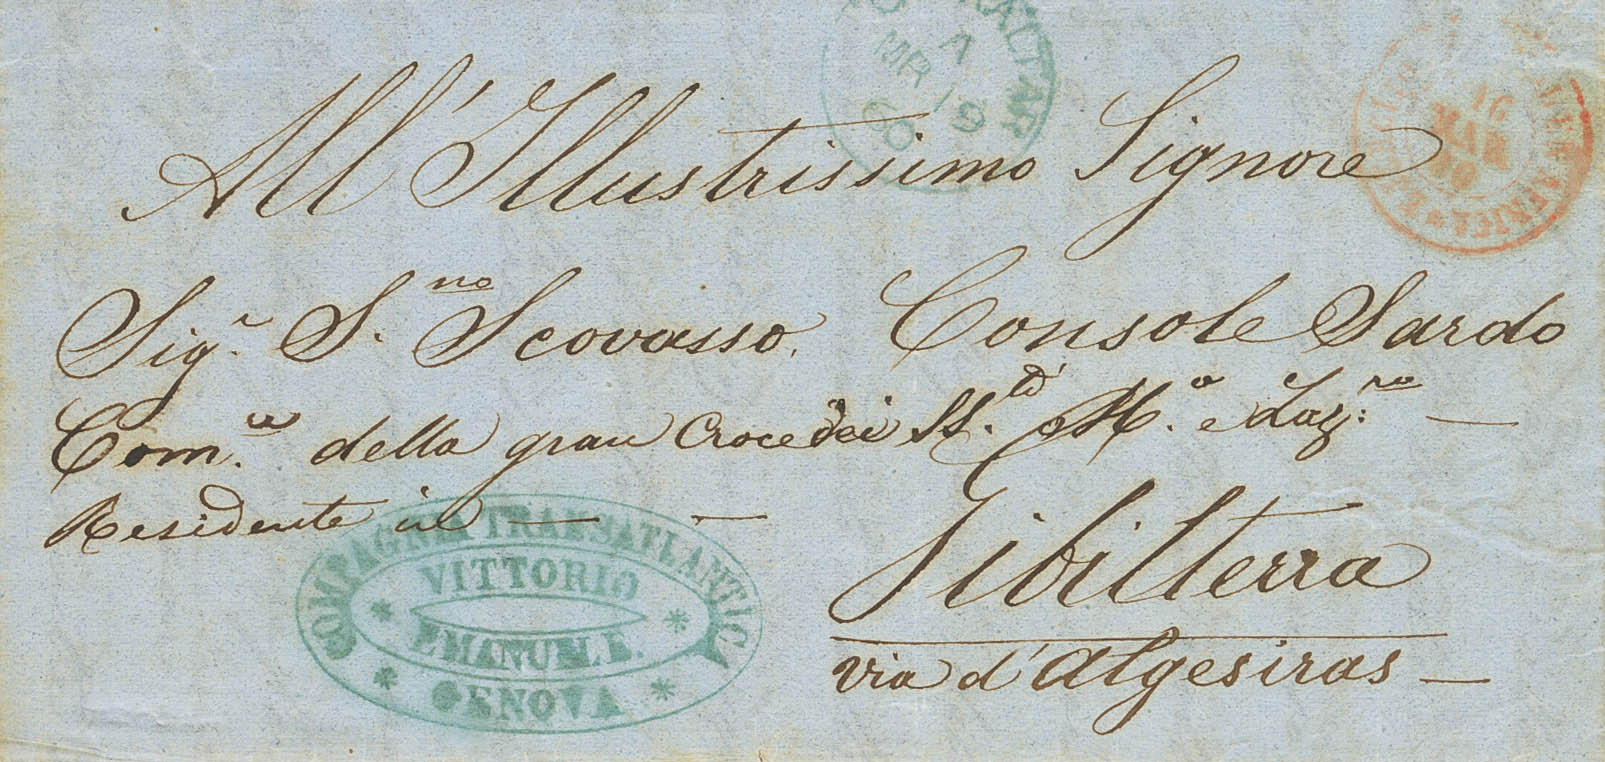 GIBRALTAR
A
MR 19
60
16
MAR
60
AFRICA
All' Illustrissimo Signore
Sig.r S.no Scovasso. Console Sardo
Com.e della gran Croce dei SS.ti M.o e Laz:ro —
Residente in — —
Gibilterra
via d'Algesiras —
COMPAGNIA TRANSATLANTICA
VITTORIO
EMANUELE
GENOVA